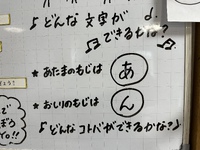 ♪どんな文字が♪
できるかな?
★あたまのもじは あ
★おしりのもじは ん
♪どんなコトバができるかな?♪